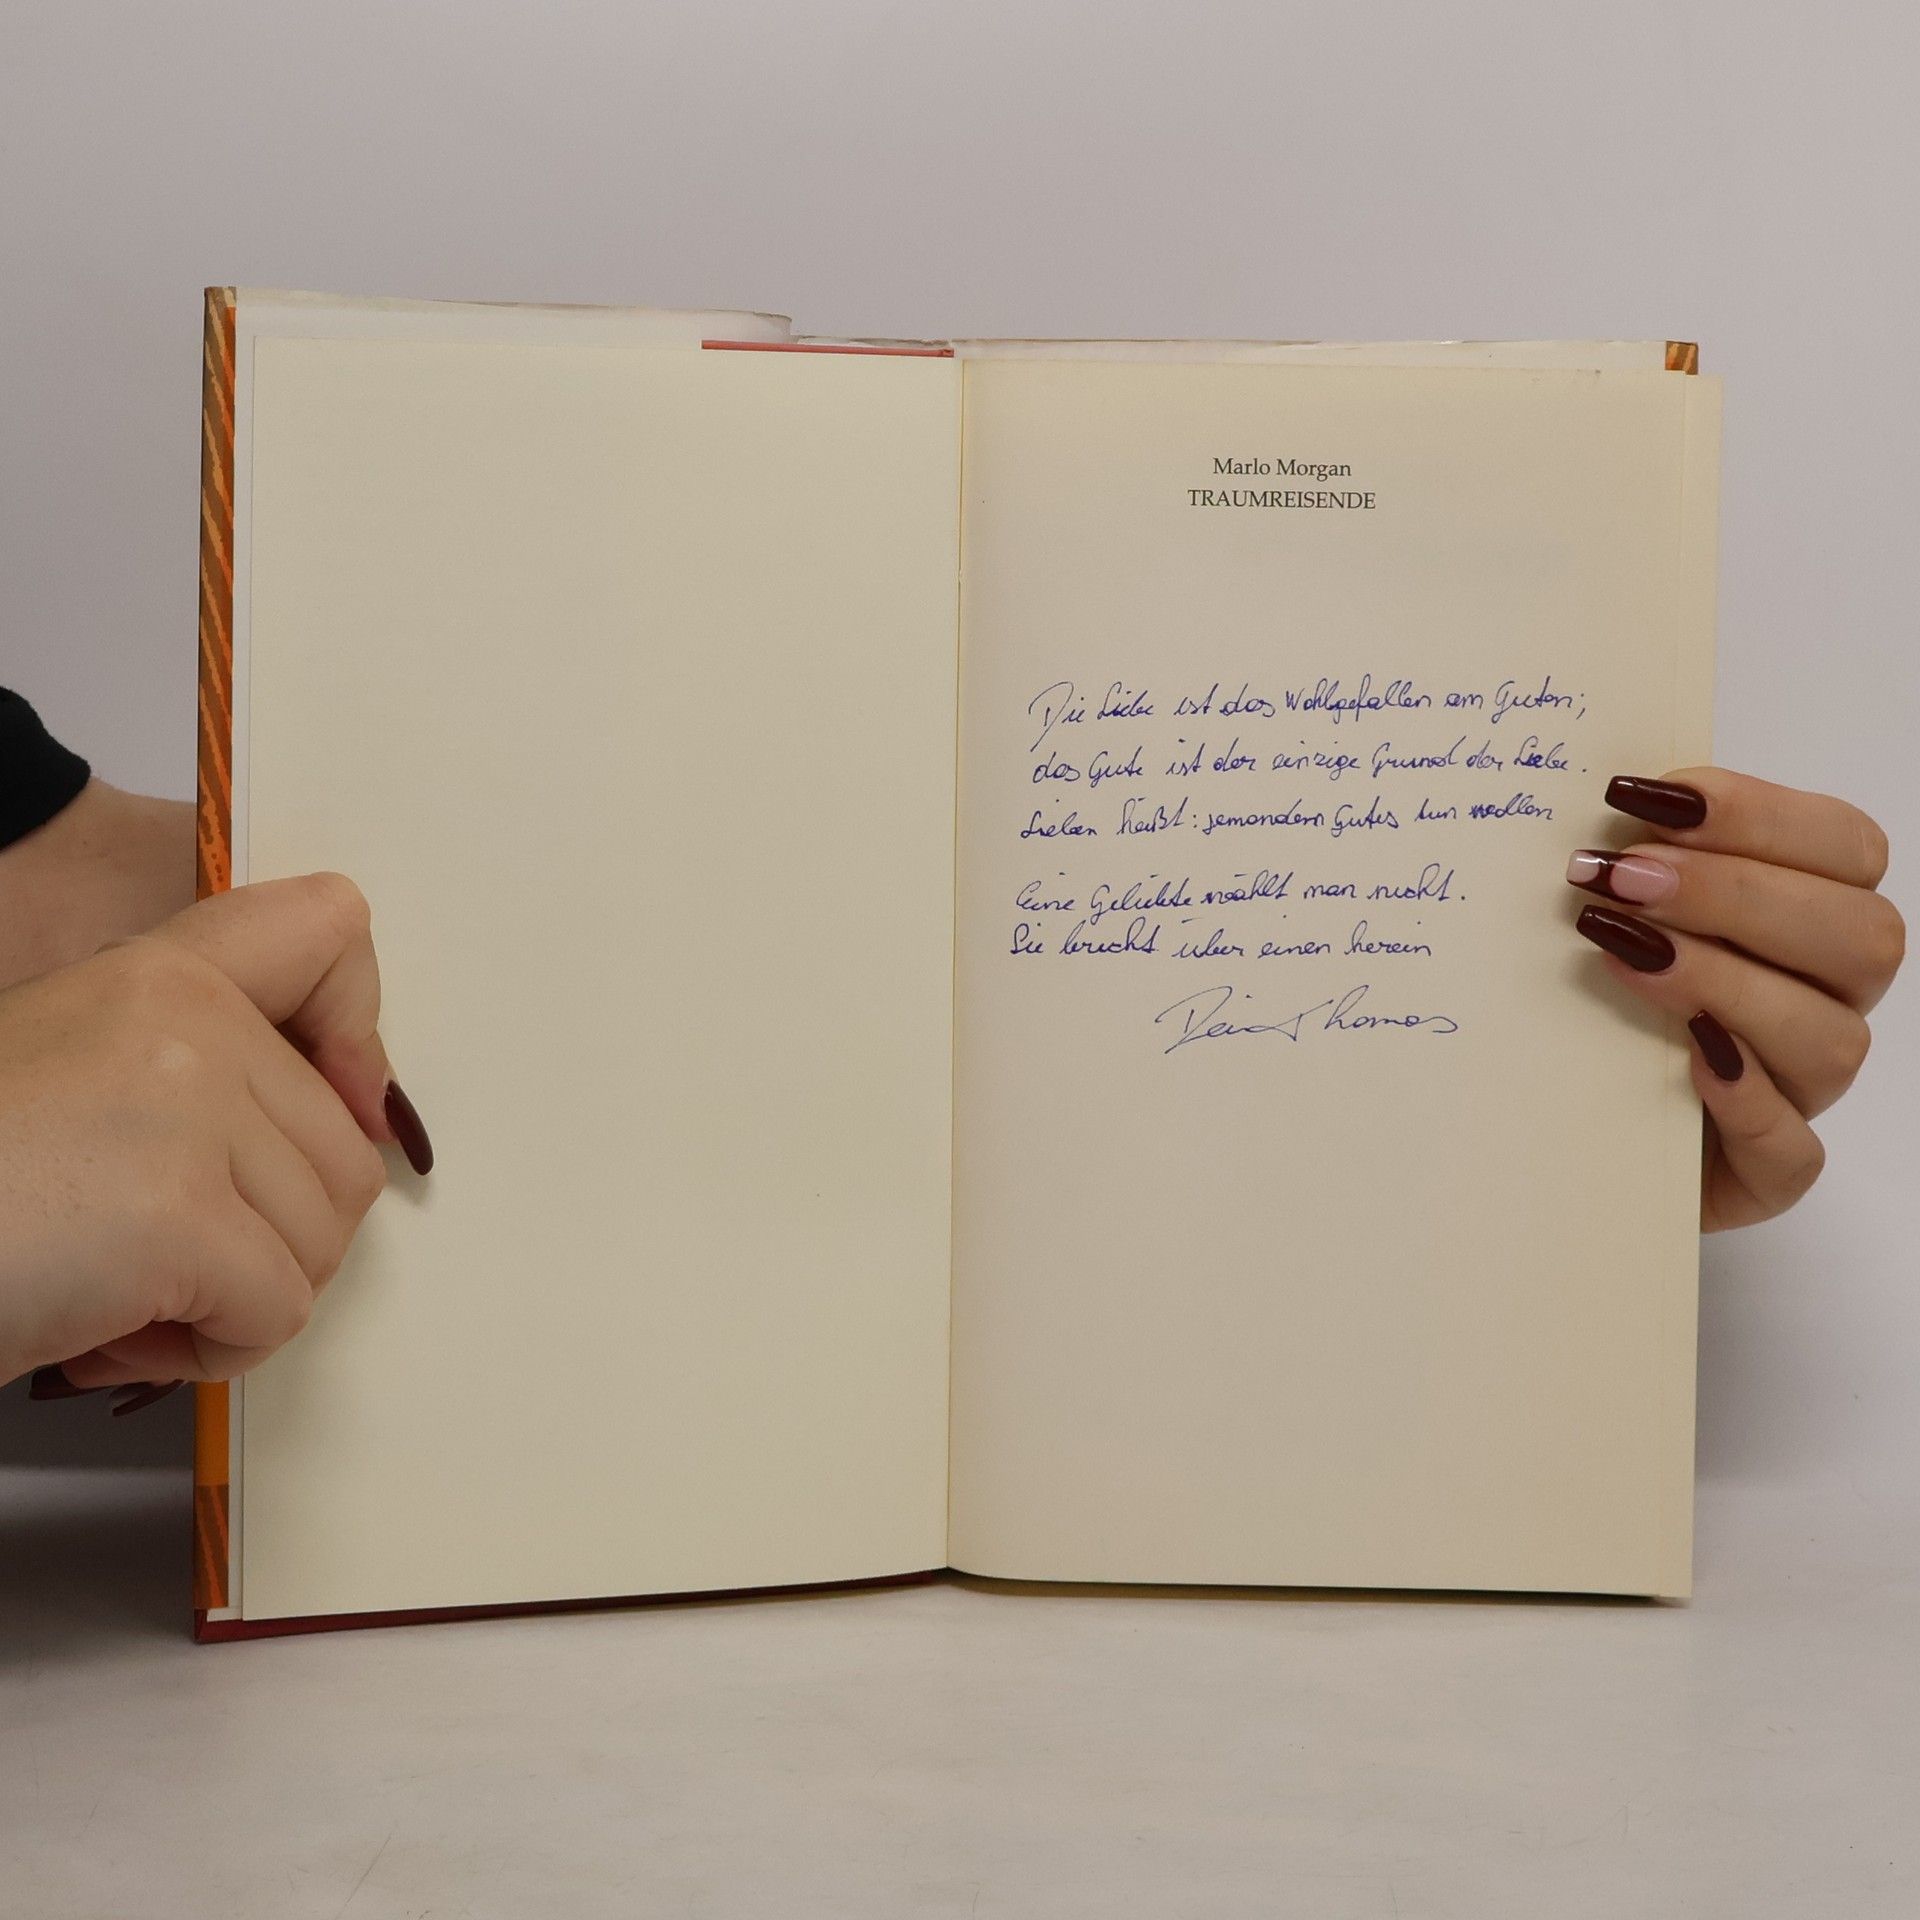 Marlo Morgan
TRAUMREISENDE
Die Liebe ist das Wohlgefallen am Guten;
das Gute ist der einzige Grund der Liebe.
Lieben heißt: jemandem Gutes tun wollen
Eine Geliebte wählt man nicht.
Sie bricht über einen herein
Dein Thomas